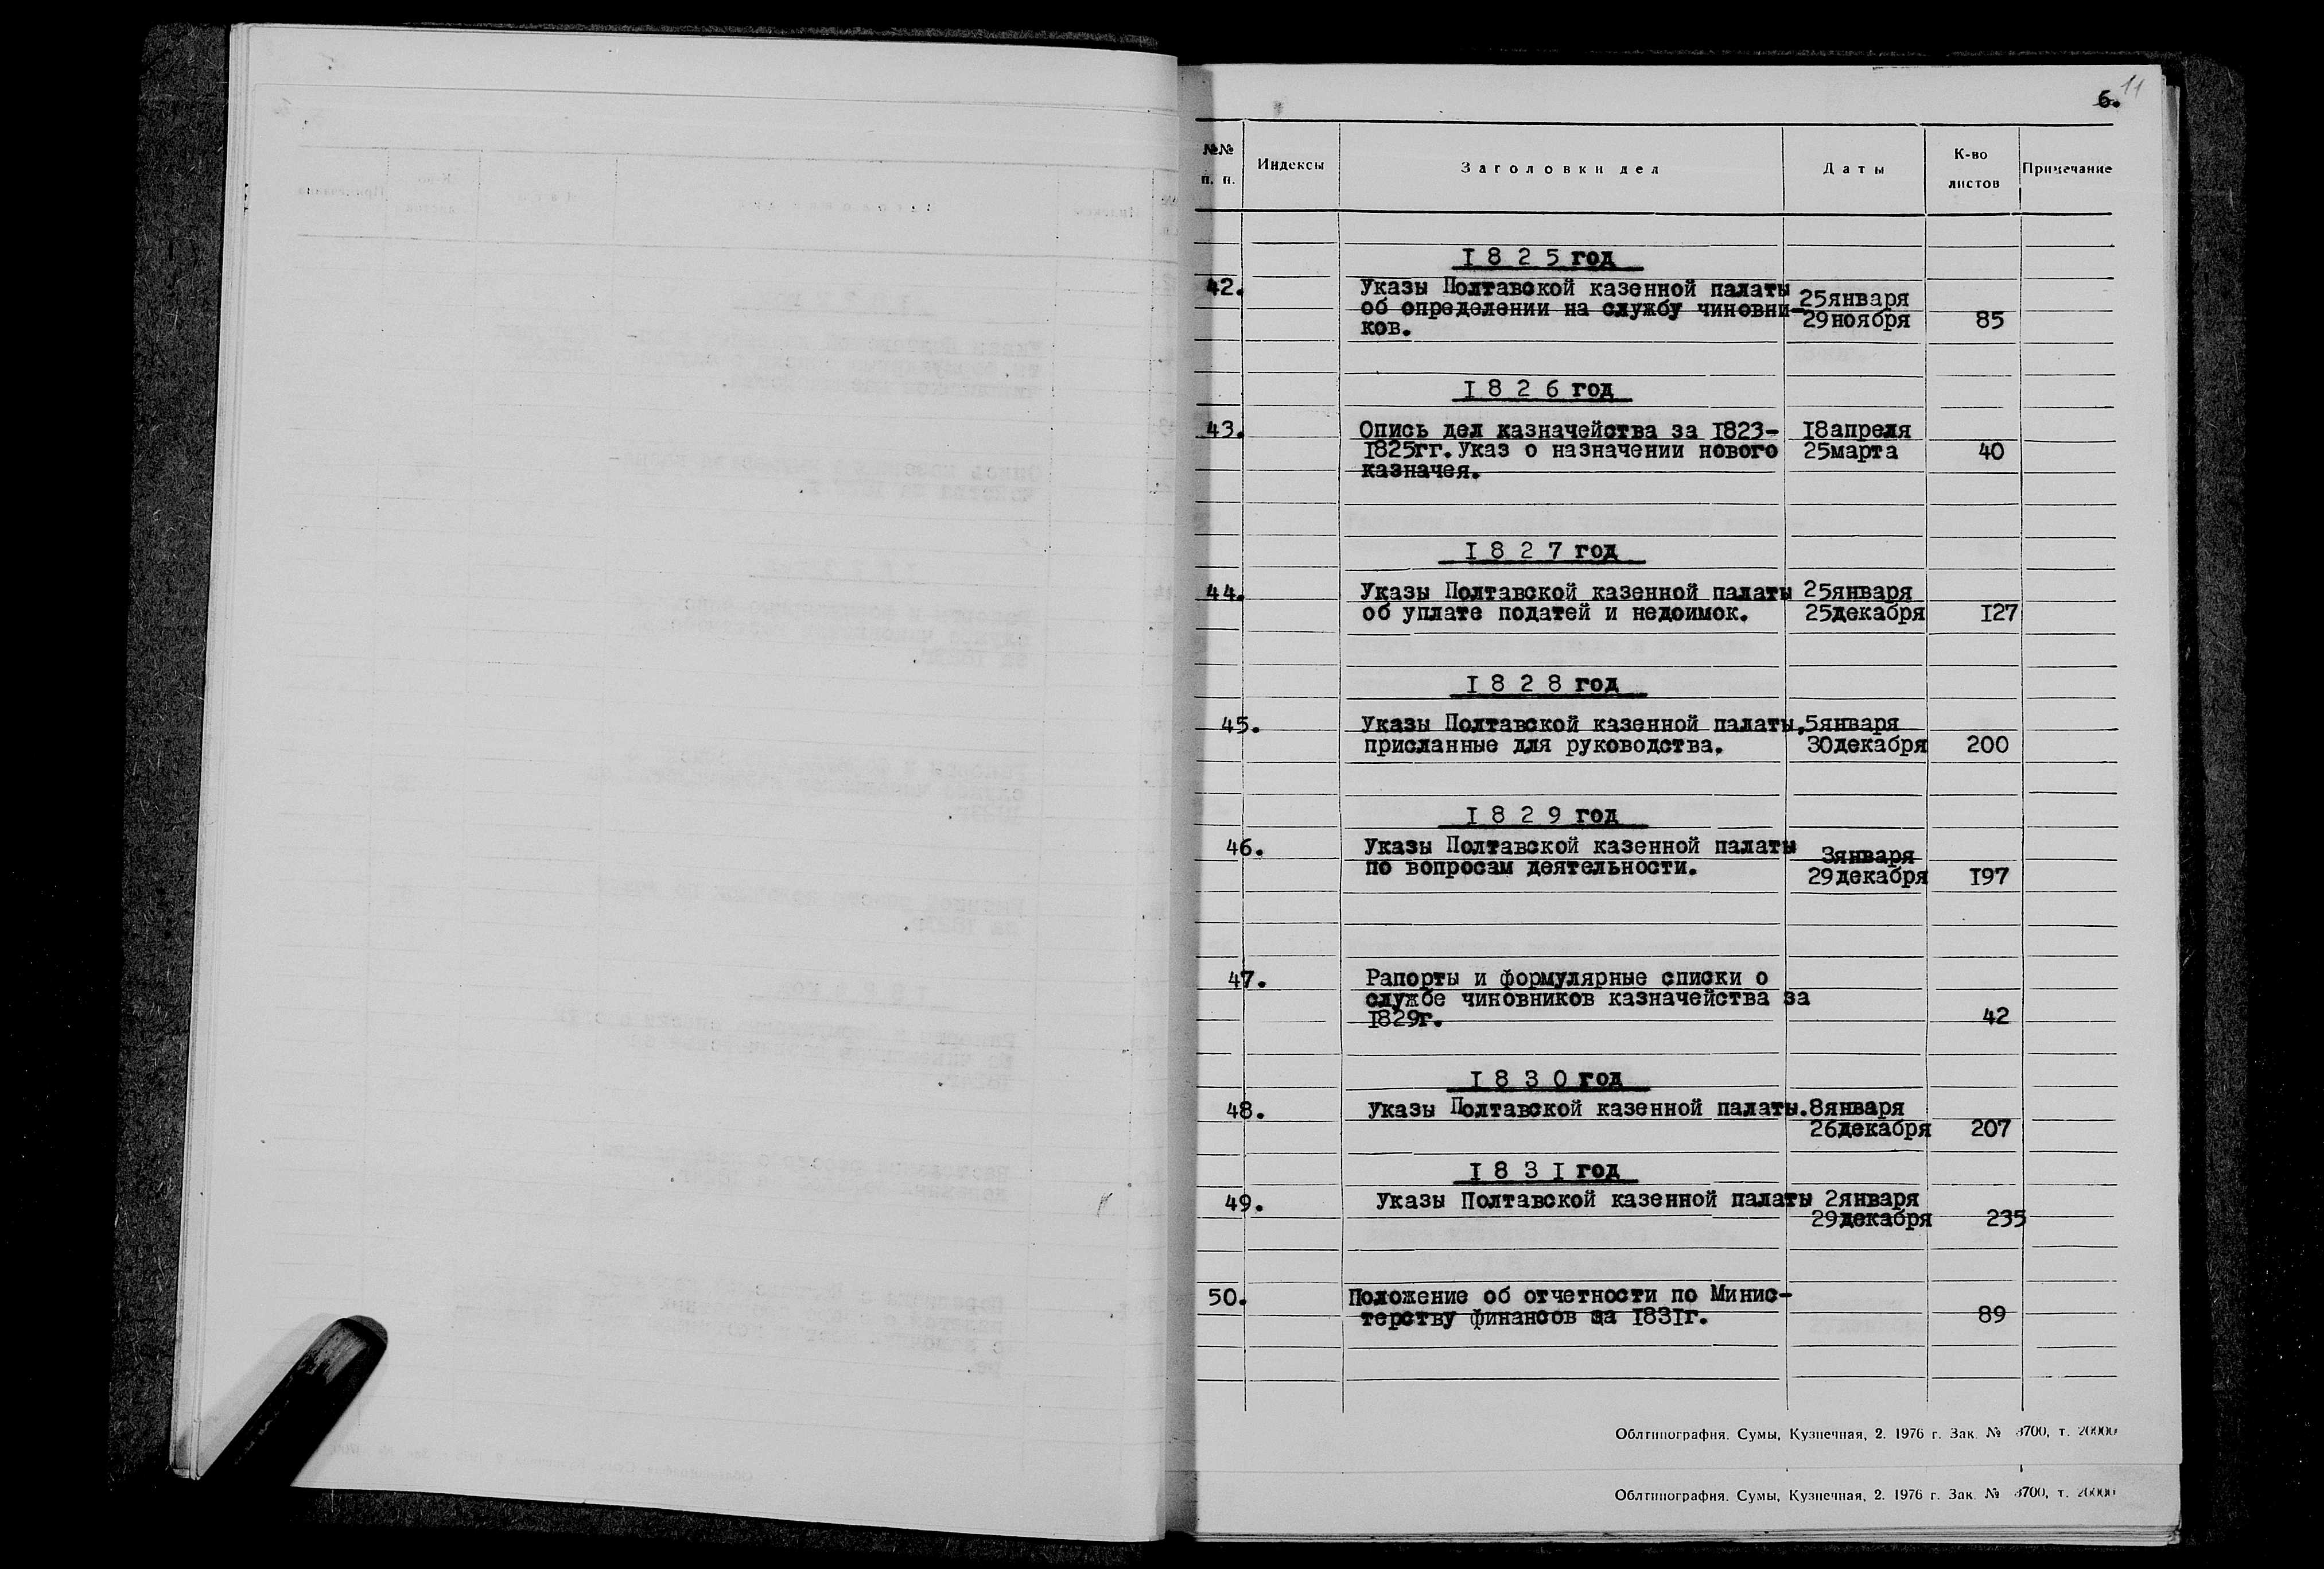 6. 11
№№ п. п. Индексы Заголовки дел Даты К-во листов Примечание
1825 год
42. Указы Полтавской казенной палаты 25января
об определении на службу чиновни- 29ноября 85
ков.
1826 год
43. Опись дел казначейства за 1823- 18апреля
1825гг.Указ о назначении нового 25марта 40
казначея.
1827 год
44. Указы Полтавской казенной палаты 25января
об уплате податей и недоимок. 25декабря 127
1828 год
45. Указы Полтавской казенной палаты, 5января
присланные для руководства. 30декабря 200
1829 год
46. Указы Полтавской казенной палаты 3января
по вопросам деятельности. 29декабря 197
47. Рапорты и формулярные списки о
службе чиновников казначейства за
1829г. 42
1830 год
48. Указы Полтавской казенной палаты. 8января
26декабря 207
1831 год
49. Указы Полтавской казенной палаты 2января
29декабря 235
50. Положение об отчетности по Минис-
терству финансов за 1831г. 89
Облтипография. Сумы, Кузнечная, 2. 1976 г. Зак. № 3700, т. 20000
Облтипография. Сумы, Кузнечная, 2. 1976 г. Зак. № 3700, т. 20000